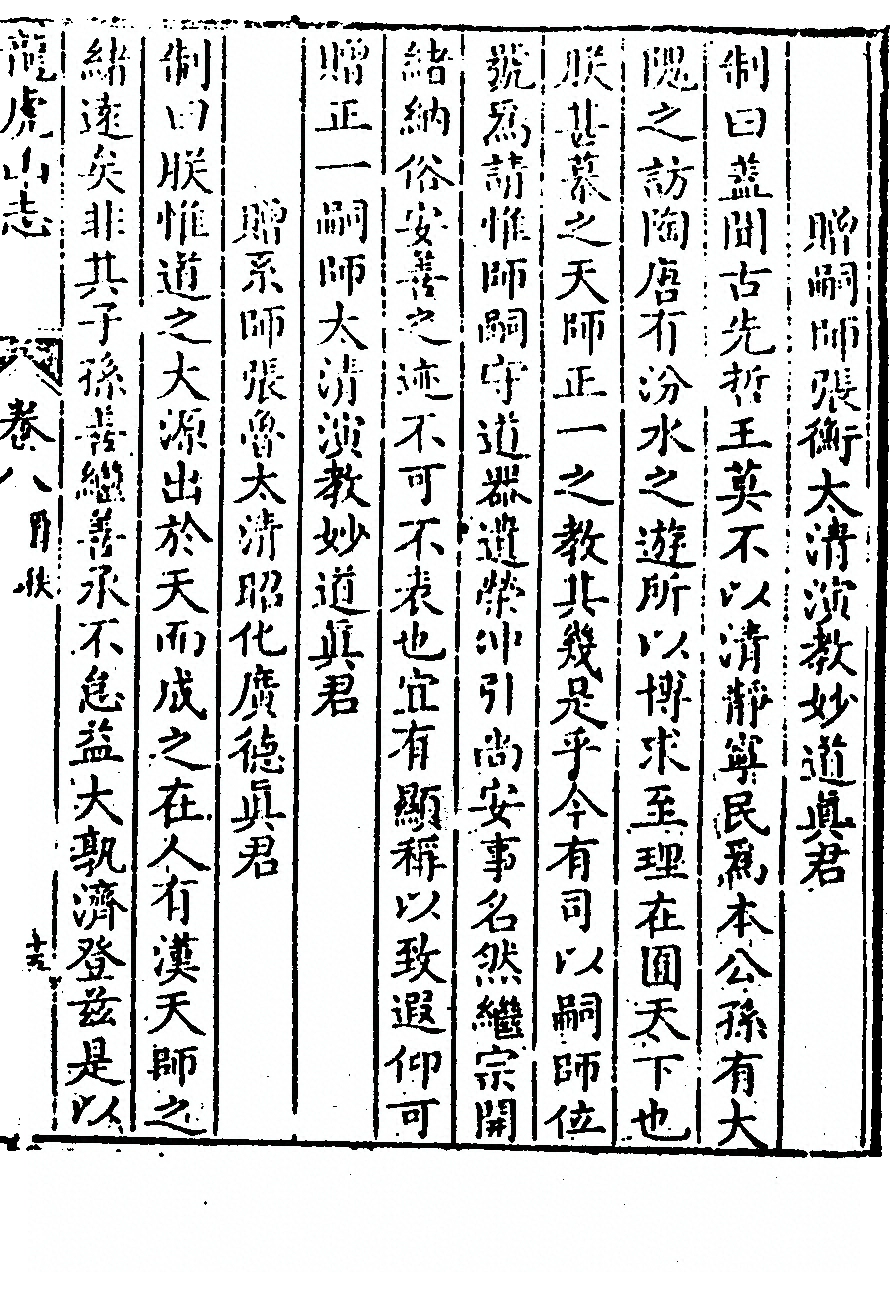 贈嗣師張衡太清演教妙道眞君
制曰蓋聞古先哲王莫不以清靜寧民爲本公孫有大
隗之訪陶唐有汾水之遊所以博求至理在囿天下也
朕甚慕之天師正一之教其幾是乎今有司以嗣師位
號爲請惟師嗣守道器遺榮冲引尚安事名然繼宗開
緒納俗安善之迹不可不表也宜有顯稱以致遐仰可
贈正一嗣師太清演教妙道眞君
贈系師張魯太清昭化廣德眞君
制曰朕惟道之大源出於天而成之在人有漢天師之
緒遠矣非其子孫善繼善承不怠益大孰濟登兹是以
龍虎山志
卷八